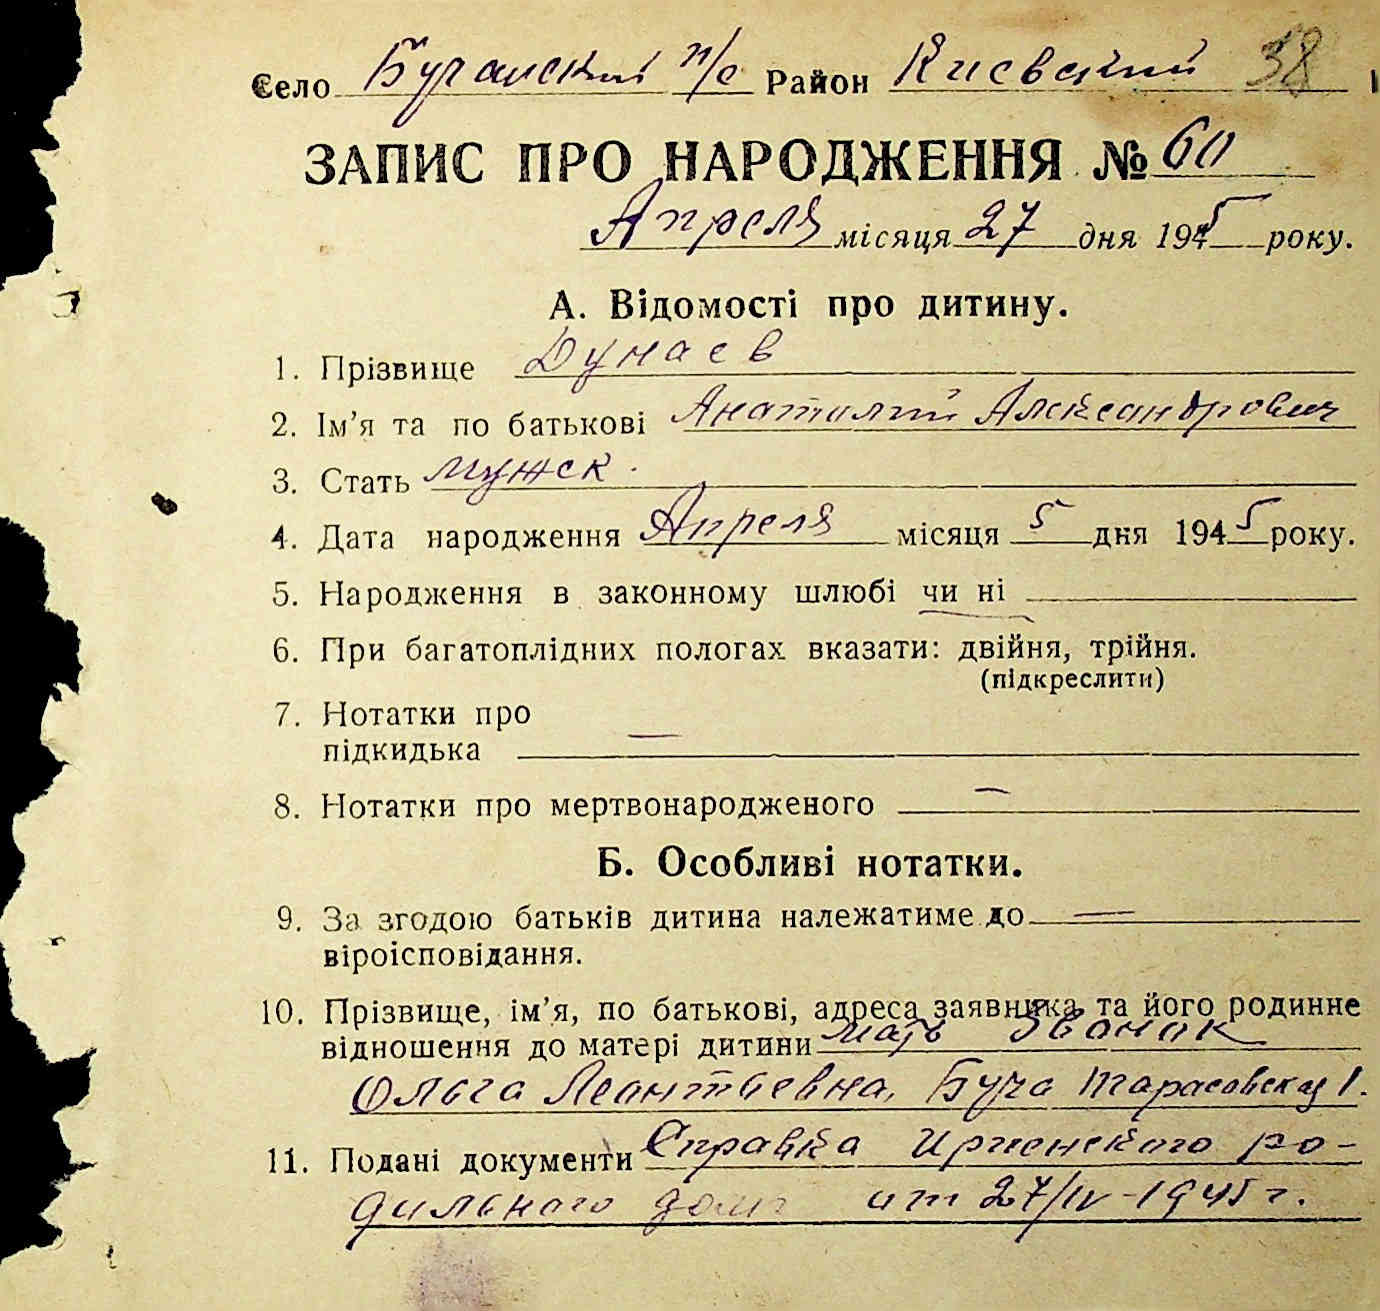 Село Бучанский п/с Район Киевский 38
ЗАПИС ПРО НАРОДЖЕННЯ № 60
Апреля місяця 27 дня 1945 року.
А. Відомості про дитину.
1. Прізвище Дунаев
2. Ім'я та по батькові Анатолий Александрович
3. Стать мужск.
4. Дата народження Апреля місяця 5 дня 1945 року.
5. Народження в законному шлюбі чи ні
6. При багатоплідних пологах вказати: двійня, трійня.
(підкреслити)
7. Нотатки про
підкидька —
8. Нотатки про мертвонародженого —
Б. Особливі нотатки.
9. За згодою батьків дитина належатиме до —
віроісповідання.
10. Прізвище, ім'я, по батькові, адреса заявника та його родинне
відношення до матері дитини мать Звонак
Ольга Леонтьевна, Буча Тарасовская 1.
11. Подані документи Справка Ирпенского ро-
дильного дома от 27/IV-1945 г.